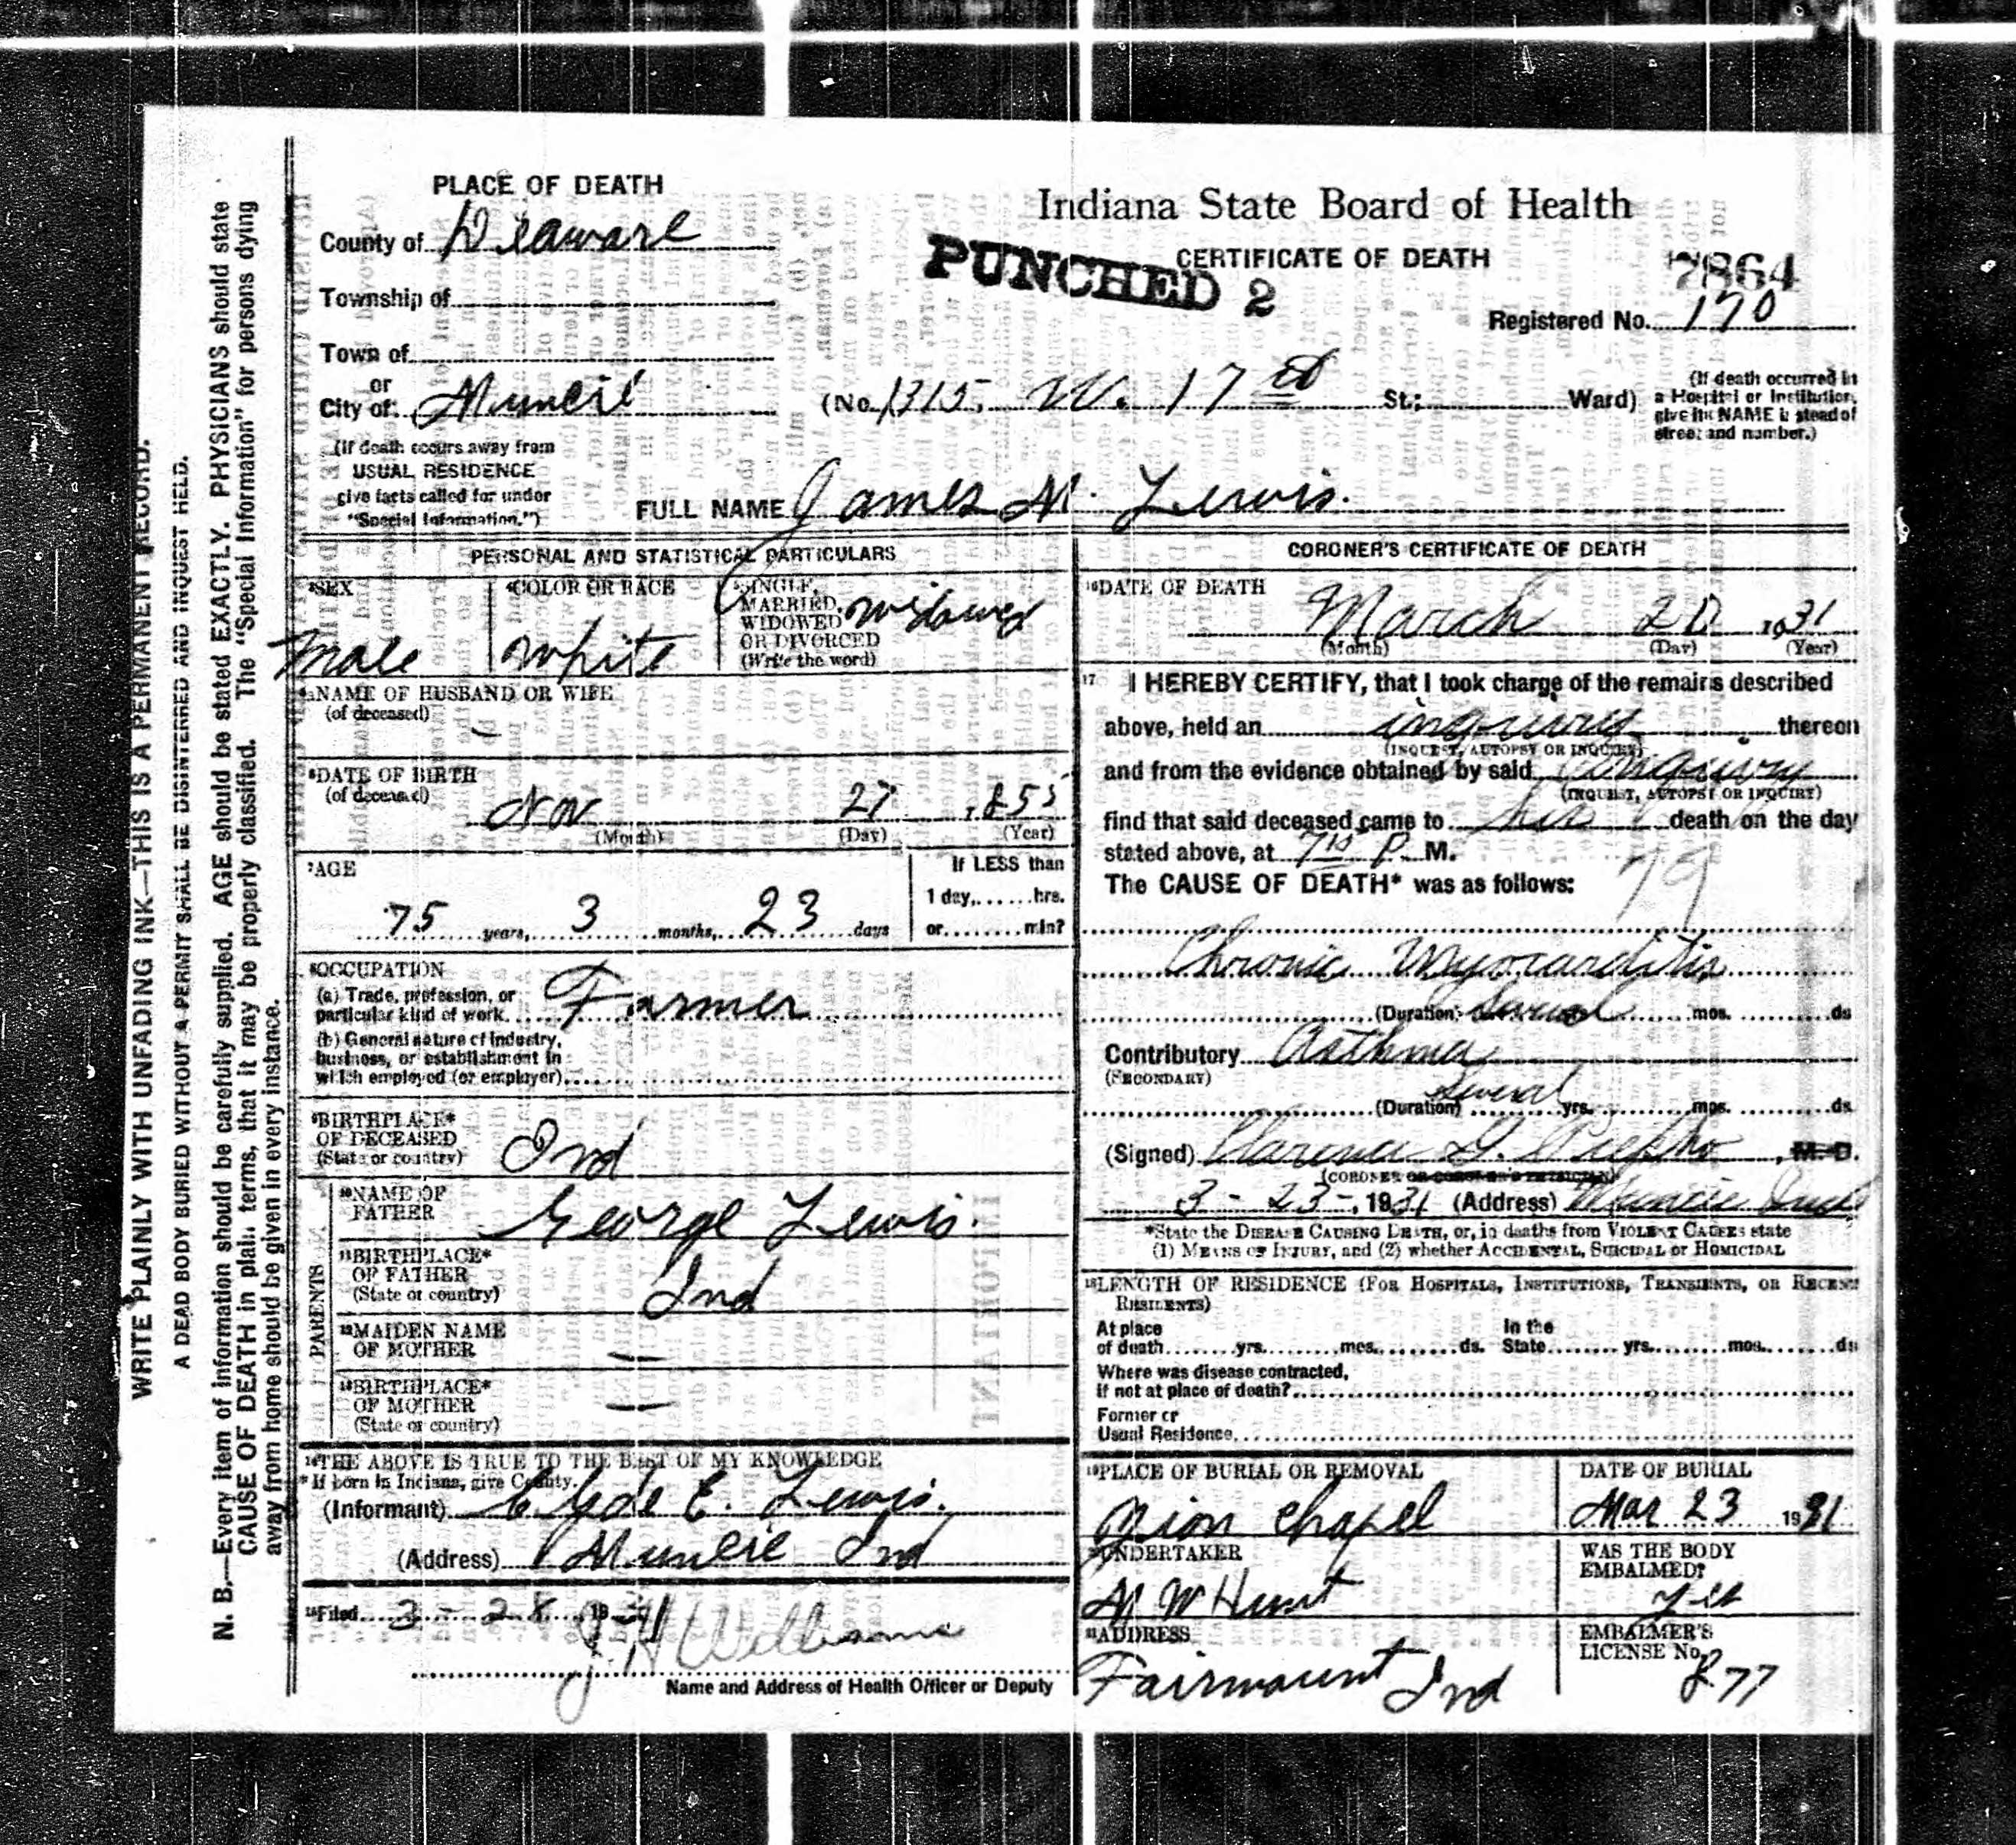 PLACE OF DEATH
County of Delaware
Township of
Town of
or
City of Muncie
(If death occurs away from
USUAL RESIDENCE
give facts called for under
"Special Information.")
Indiana State Board of Health
CERTIFICATE OF DEATH
PUNCHED 2
7864
Registered No. 170
(No. 1315, W. 17 St.; Ward)
(If death occurred in
a Hospital or Institution,
give its NAME instead of
street and number.)
FULL NAME James M. Lewis.
PERSONAL AND STATISTICAL PARTICULARS
3SEX
male
4COLOR OR RACE
white
5SINGLE,
MARRIED,
WIDOWED
OR DIVORCED
(Write the word)
widowed
NAME OF HUSBAND OR WIFE
(of deceased)
—
6DATE OF BIRTH
(of deceased)
Nov 27 1855
(Month) (Day) (Year)
7AGE
75 years, 3 months, 23 days
If LESS than
1 day, ...... hrs.
or ........ min?
8OCCUPATION
(a) Trade, profession, or
particular kind of work Farmer
(b) General nature of industry,
business, or establishment in
which employed (or employer)
9BIRTHPLACE*
OF DECEASED
(State or country)
Ind
PARENTS
10NAME OF
FATHER
George Lewis.
11BIRTHPLACE*
OF FATHER
(State or country)
Ind
12MAIDEN NAME
OF MOTHER
—
13BIRTHPLACE*
OF MOTHER
(State or country)
—
14THE ABOVE IS TRUE TO THE BEST OF MY KNOWLEDGE
*If born in Indiana, give County.
(Informant) Clyde E. Lewis.
(Address) Muncie Ind
15Filed 3-28, 1931
J. H. Williams
Name and Address of Health Officer or Deputy
CORONER'S CERTIFICATE OF DEATH
16DATE OF DEATH
March 20 1931
(Month) (Day) (Year)
17 I HEREBY CERTIFY, that I took charge of the remains described
above, held an inquiry thereon
(INQUEST, AUTOPSY OR INQUIRY)
and from the evidence obtained by said inquiry
(INQUEST, AUTOPSY OR INQUIRY)
find that said deceased came to his death on the day
stated above, at P. M.
The CAUSE OF DEATH* was as follows:
Chronic Myocarditis
(Duration) Several mos. ds
Contributory Asthma
(SECONDARY)
(Duration) Several yrs. mos. ds
(Signed) Clarence G. Piepho, M. D.
(CORONER OR CORONER'S PHYSICIAN)
3-23-, 1931 (Address) Muncie Ind
*State the DISEASE CAUSING DEATH, or, in deaths from VIOLENT CAUSES state
(1) MEANS OF INJURY, and (2) whether ACCIDENTAL, SUICIDAL or HOMICIDAL
18LENGTH OF RESIDENCE (FOR HOSPITALS, INSTITUTIONS, TRANSIENTS, OR RECENT
RESIDENTS)
At place
of death yrs. mos. ds.
In the
State yrs. mos. ds
Where was disease contracted,
If not at place of death?
Former or
Usual Residence
19PLACE OF BURIAL OR REMOVAL
Zion Chapel
DATE OF BURIAL
Mar 23 1931
20UNDERTAKER
M W Hunt
WAS THE BODY
EMBALMED?
Yes
21ADDRESS
Fairmount Ind
EMBALMER'S
LICENSE No.
877
WRITE PLAINLY WITH UNFADING INK—THIS IS A PERMANENT RECORD.
A DEAD BODY BURIED WITHOUT A PERMIT SHALL BE DISINTERRED AND INQUEST HELD.
N. B.—Every item of information should be carefully supplied. AGE should be stated EXACTLY. PHYSICIANS should state
CAUSE OF DEATH in plain terms, that it may be properly classified. The "Special Information" for persons dying
away from home should be given in every instance.